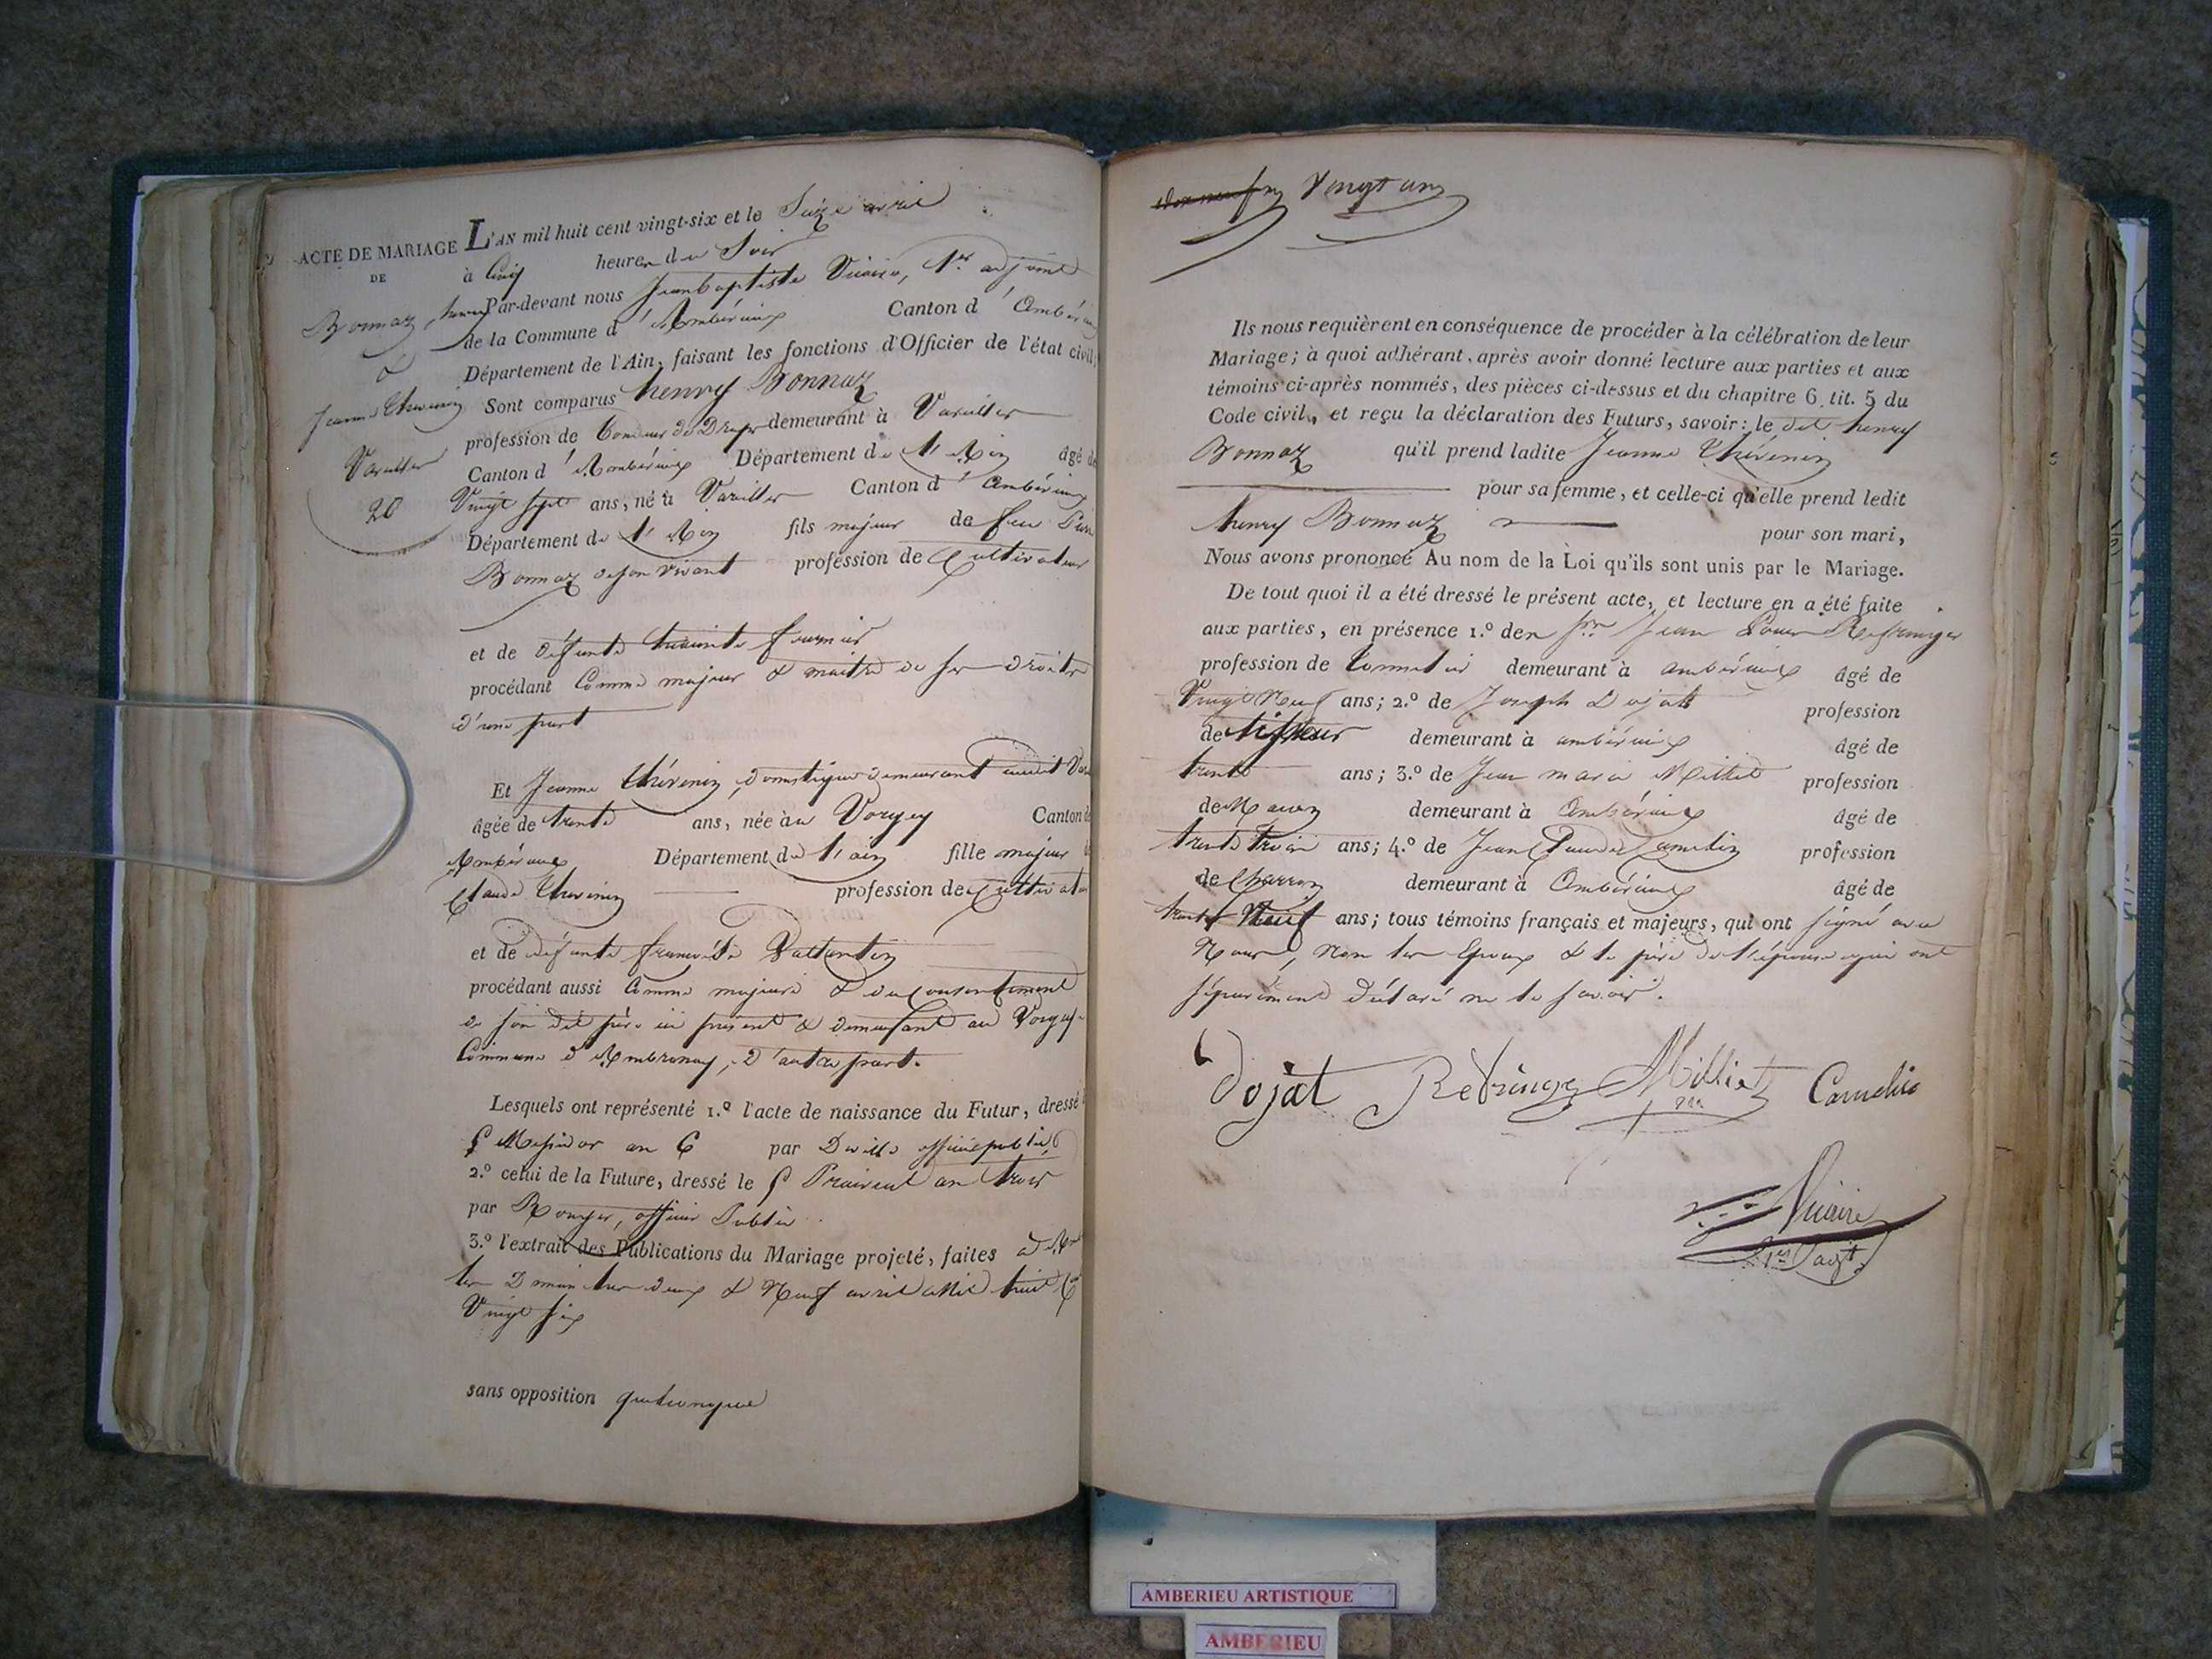 ACTE DE MARIAGE
DE
Bonnaz, henry
&
Jeanne Thevenin
Vareilles
20
L'AN mil huit cent vingt-six et le Seize avril
à Cinq heures du Soir
Par-devant nous Jean baptiste Vicaire, 1.er adjoint
de la Commune d'Ambérieux Canton d'Ambérieux
Département de l'Ain, faisant les fonctions d'Officier de l'état civil,
Sont comparus henry Bonnaz
profession de demeurant à Vareilles
Canton d'Ambérieux Département de l'Ain âgé de
Vingt sept ans, né à Vareilles Canton d'Ambérieux
Département de l'Ain fils majeur de feu
Bonnaz de son vivant profession de Cultivateur
et de défunte fournier
procédant Comme majeur & maitre de ses droits
d'une part
Et Jeanne Thévenin, domestique demeurant audit
âgée de trente ans, née au Vorgey Canton d
Ambérieux Département de l'ain fille majeur
Claude Thevenin profession de Cultivateur
et de défunte
procédant aussi Comme majeure & du Consentement
de son dit père ici présent & demeurant au Vorgey
Commune d'Ambronay, d'autre part.
Lesquels ont représenté 1.º l'acte de naissance du Futur, dressé
Messidor an 6 par officier public,
2.º celui de la Future, dressé le Prairial an trois
par Rouyer, officier Public
3.º l'extrait des Publications du Mariage projeté, faites
les Dimanches deux & Neuf avril Mil huit
Vingt six
sans opposition quelconque
Vingt un
Ils nous requièrent en conséquence de procéder à la célébration de leur
Mariage; à quoi adhérant, après avoir donné lecture aux parties et aux
témoins ci-après nommés, des pièces ci-dessus et du chapitre 6, tit. 5 du
Code civil, et reçu la déclaration des Futurs, savoir: le dit henry
Bonnaz qu'il prend ladite Jeanne Thévenin
pour sa femme, et celle-ci qu'elle prend ledit
henry Bonnaz pour son mari,
Nous avons prononcé Au nom de la Loi qu'ils sont unis par le Mariage.
De tout quoi il a été dressé le présent acte, et lecture en a été faite
aux parties, en présence 1.º de Jean Louis
profession de demeurant à ambérieux âgé de
Vingt Neuf ans; 2.º de Joseph Dojat profession
de tisseur demeurant à ambérieux âgé de
trente ans; 3.º de Jean marie Milliet profession
de Maçon demeurant à Ambérieux âgé de
trente trois ans; 4.º de Jean Claude Camelin profession
de Charron demeurant à Ambérieux âgé de
trente Neuf ans; tous témoins français et majeurs, qui ont signé avec
Nous, Non les Epoux & le père de l'épouse qui ont
séparément déclaré ne le savoir.
Dojat Milliet Camelin
Vicaire
1er adjt
AMBERIEU ARTISTIQUE
AMBERIEU